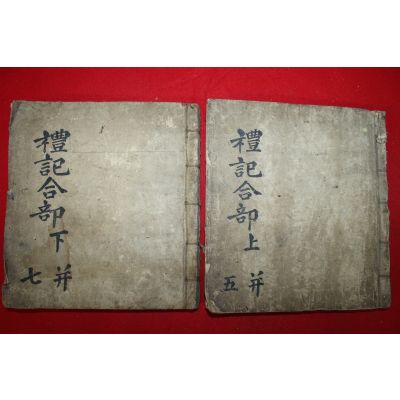 禮記合部上
五 并
禮記合部下
七 并